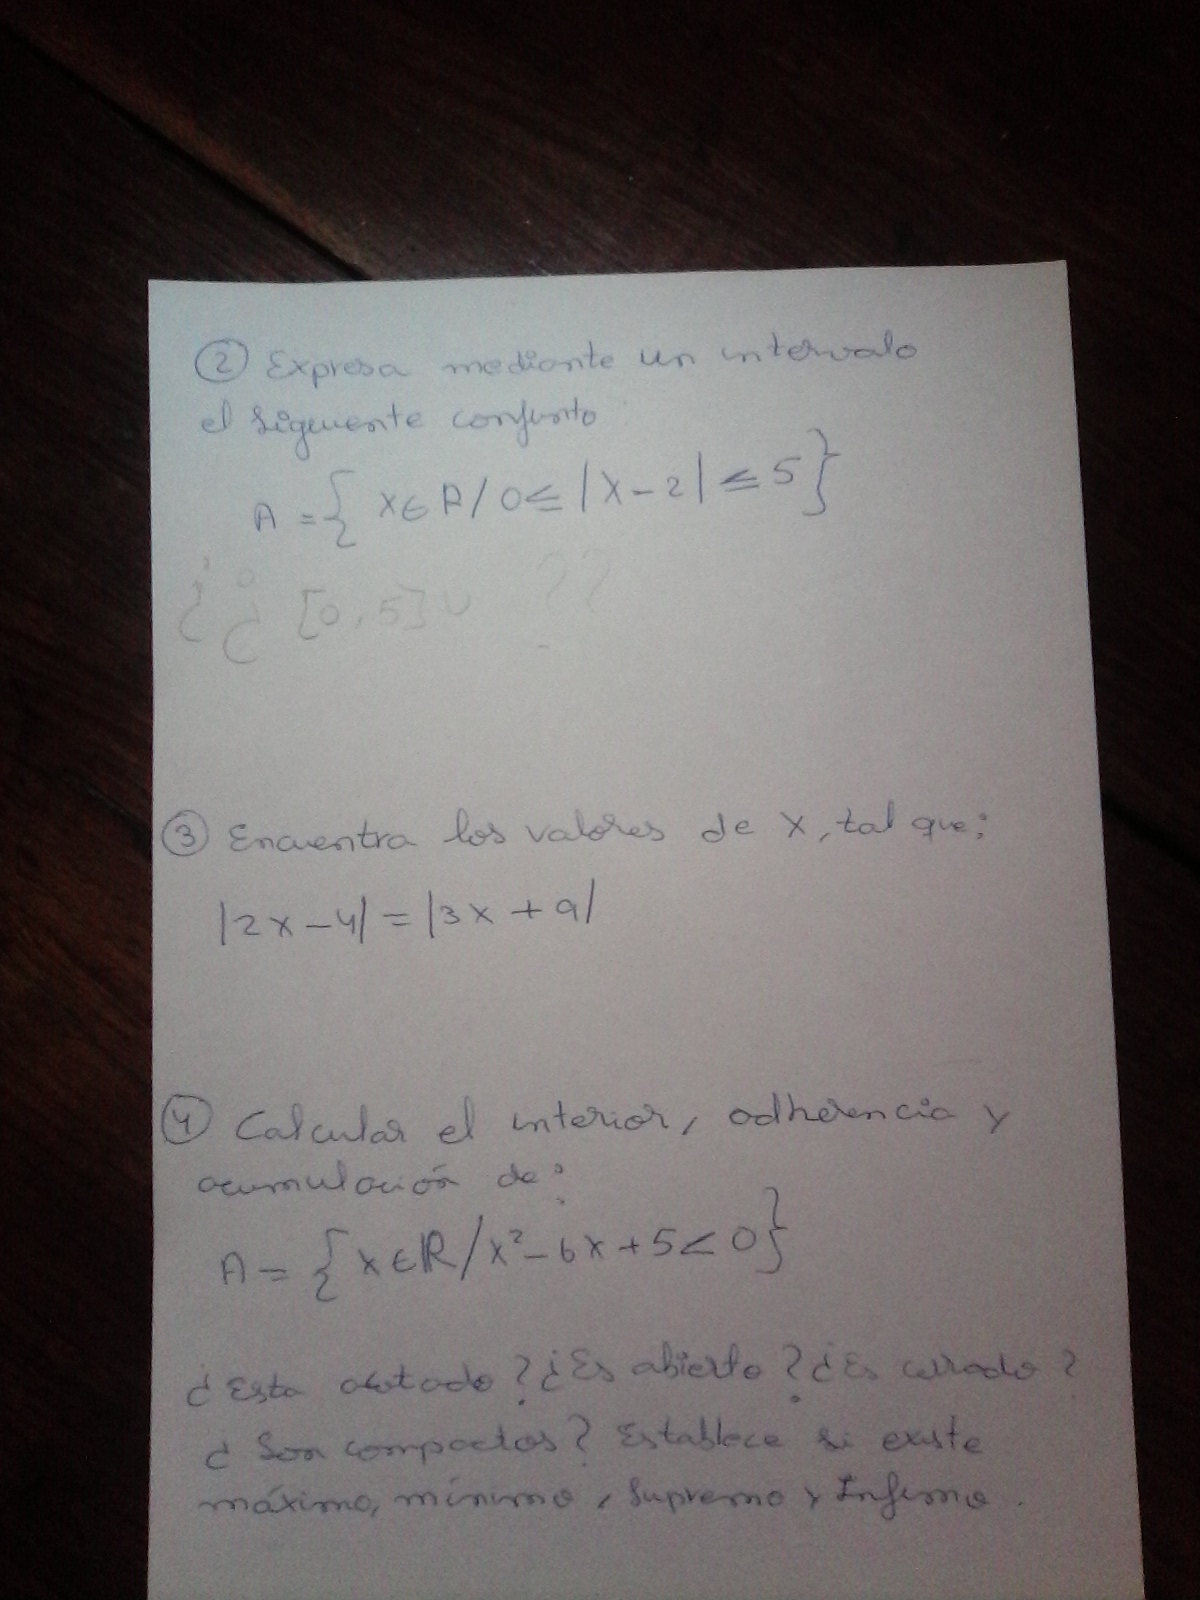 ② Expresa mediante un intervalo
el siguiente conjunto:
A = { x ∈ R / 0 ≤ |x - 2| ≤ 5 }
¿¿ [0, 5] ∪ ??
③ Encuentra los valores de x, tal que:
|2x - 4| = |3x + 9|
④ Calcular el interior, adherencia y
acumulación de:
A = { x ∈ ℝ / x² - 6x + 5 < 0 }
¿Esta acotado? ¿Es abierto? ¿Es cerrado?
¿Son compactos? Establece si existe
máximo, mínimo, Supremo y Infimo.